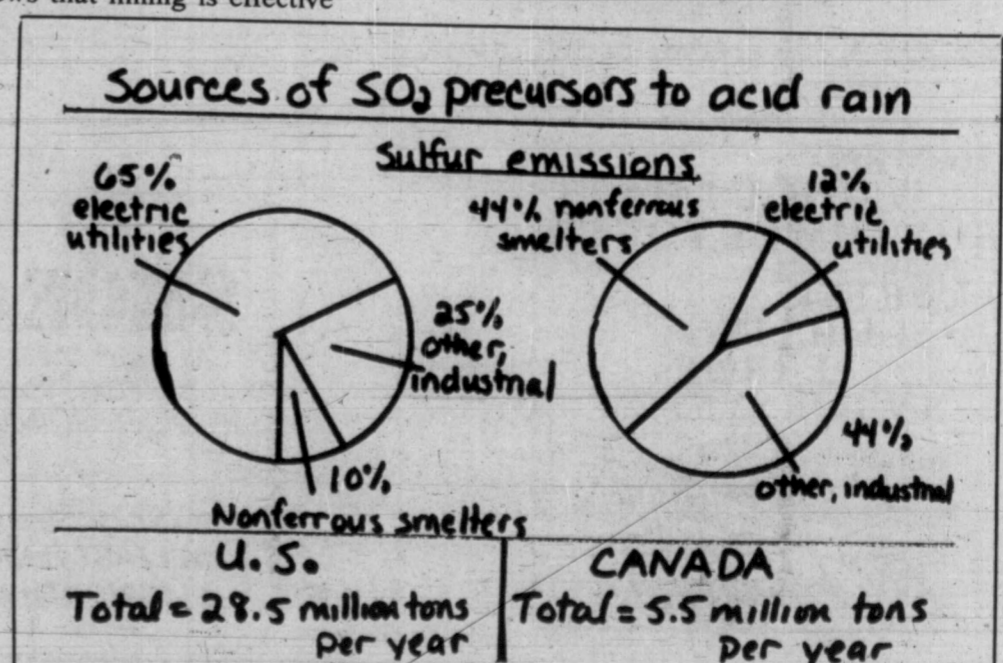 that liming is effective
Sources of SO2 precursors to acid rain
Sulfur emissions
65%
electric
utilities
25%
other,
industrial
10%
Nonferrous smelters
44% nonferrous
smelters
12%
electric
utilities
44%
other, industrial
U.S.
Total = 28.5 million tons
per year
CANADA
Total = 5.5 million tons
per year